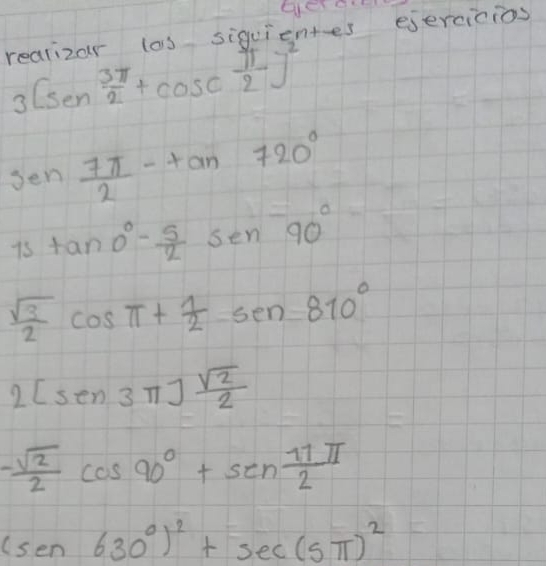 realizar los siguientes ejercicios
3[sen 3π/2 + cosc π/2]²
sen 7π/2 - tan 720°
15 tan 0° - 5/2 sen 90°
√3/2 cos π + 1/2 sen 810°
2[sen 3π] √2/2
-√2/2 cos 90° + sen 11π/2
(sen 630°)² + sec(5π)²